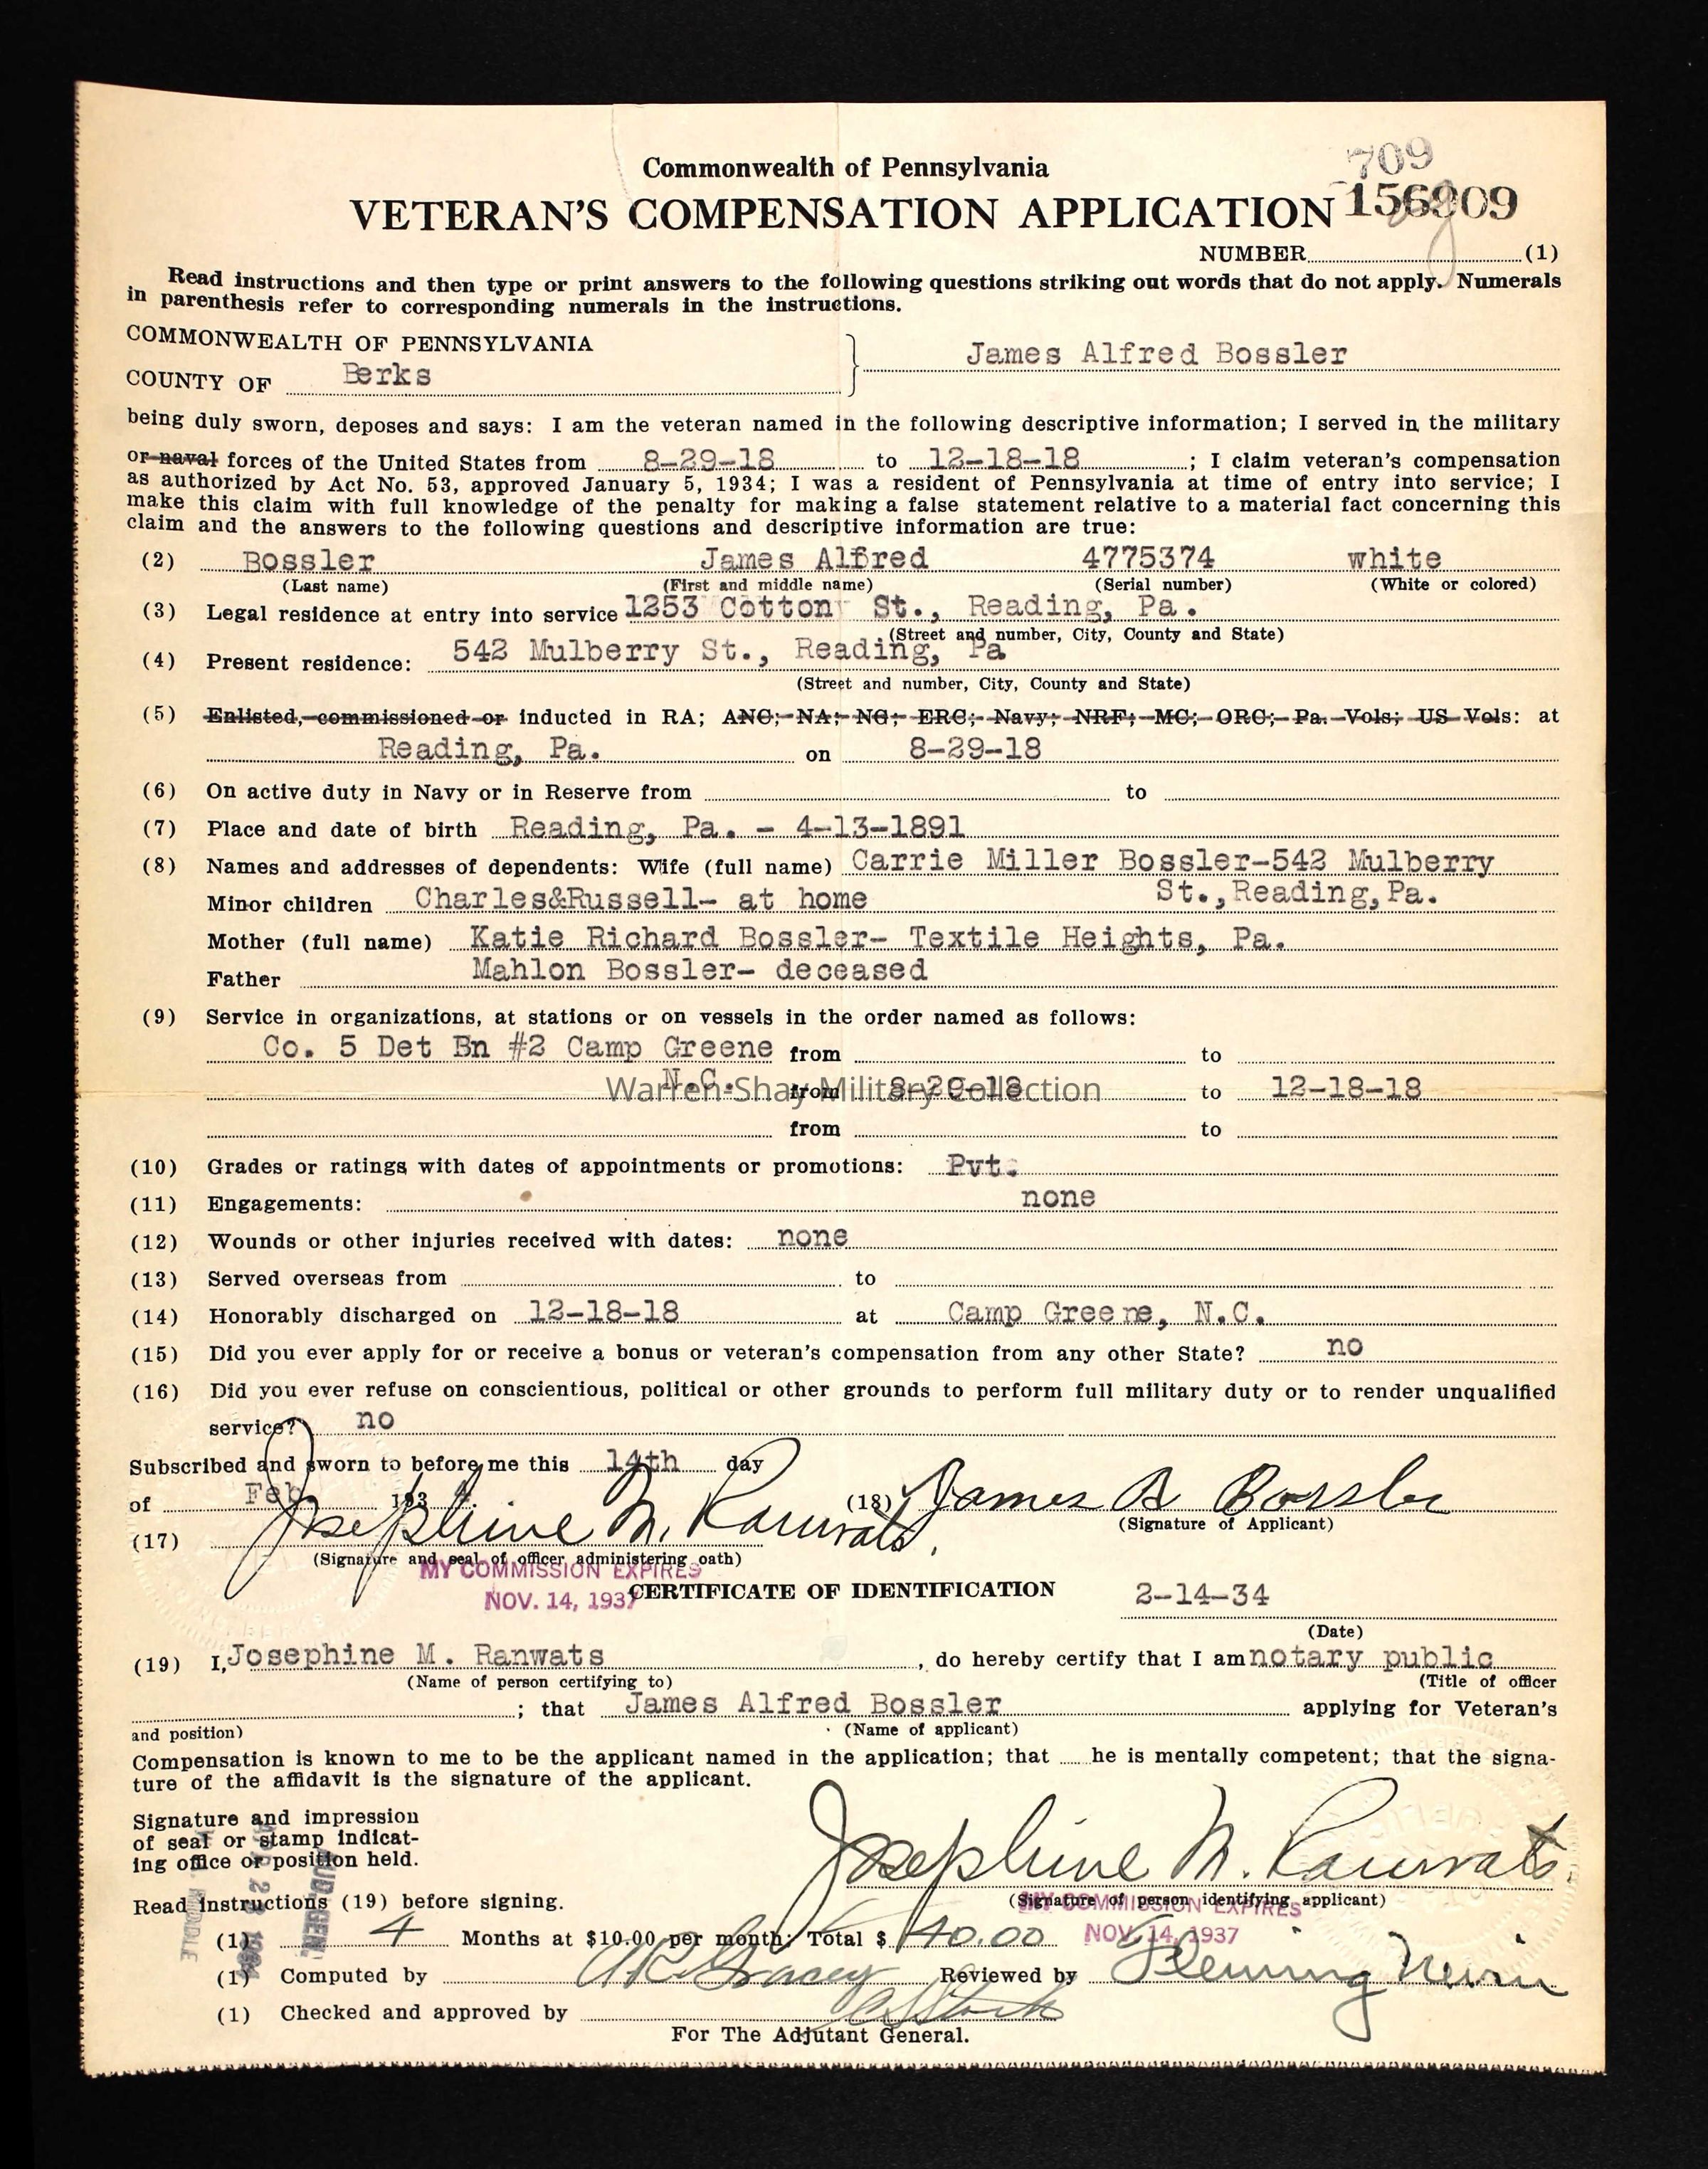 709
156909
Commonwealth of Pennsylvania
VETERAN'S COMPENSATION APPLICATION
NUMBER (1)
Read instructions and then type or print answers to the following questions striking out words that do not apply. Numerals
in parenthesis refer to corresponding numerals in the instructions.
COMMONWEALTH OF PENNSYLVANIA
James Alfred Bossler
COUNTY OF Berks
being duly sworn, deposes and says: I am the veteran named in the following descriptive information; I served in the military
or naval forces of the United States from 8-29-18 to 12-18-18 ; I claim veteran's compensation
as authorized by Act No. 53, approved January 5, 1934; I was a resident of Pennsylvania at time of entry into service; I
make this claim with full knowledge of the penalty for making a false statement relative to a material fact concerning this
claim and the answers to the following questions and descriptive information are true:
(2) Bossler James Alfred 4775374 white
(Last name) (First and middle name) (Serial number) (White or colored)
(3) Legal residence at entry into service 1253 Cotton St., Reading, Pa.
(Street and number, City, County and State)
(4) Present residence: 542 Mulberry St., Reading, Pa
(Street and number, City, County and State)
(5) Enlisted, commissioned or inducted in RA; ANC; NA; NG; ERC; Navy; NRF; MC; ORC; Pa. Vols; US Vols: at
Reading, Pa. on 8-29-18
(6) On active duty in Navy or in Reserve from to
(7) Place and date of birth Reading, Pa. - 4-13-1891
(8) Names and addresses of dependents: Wife (full name) Carrie Miller Bossler-542 Mulberry
Minor children Charles&Russell- at home St.,Reading,Pa.
Mother (full name) Katie Richard Bossler- Textile Heights, Pa.
Father Mahlon Bossler- deceased
(9) Service in organizations, at stations or on vessels in the order named as follows:
Co. 5 Det Bn #2 Camp Greene from to
N.C. from 8-29-18 to 12-18-18
Warren-Shay Military Collection
from to
(10) Grades or ratings with dates of appointments or promotions: Pvt.
(11) Engagements: none
(12) Wounds or other injuries received with dates: none
(13) Served overseas from to
(14) Honorably discharged on 12-18-18 at Camp Greene, N.C.
(15) Did you ever apply for or receive a bonus or veteran's compensation from any other State? no
(16) Did you ever refuse on conscientious, political or other grounds to perform full military duty or to render unqualified
service? no
Subscribed and sworn to before me this 14th day
of Feb. 1934.
(18) James A Bossler
(Signature of Applicant)
(17) Josephine M. Ranwats.
(Signature and seal of officer administering oath)
MY COMMISSION EXPIRES
NOV. 14, 1937
CERTIFICATE OF IDENTIFICATION 2-14-34
(Date)
(19) I, Josephine M. Ranwats , do hereby certify that I am notary public
(Name of person certifying to) (Title of officer
; that James Alfred Bossler applying for Veteran's
and position) (Name of applicant)
Compensation is known to me to be the applicant named in the application; that he is mentally competent; that the signa-
ture of the affidavit is the signature of the applicant.
Signature and impression
of seal or stamp indicat-
ing office or position held.
Josephine M. Ranwats.
Read instructions (19) before signing. (Signature of person identifying applicant)
MY COMMISSION EXPIRES
NOV. 14, 1937
(1) 4 Months at $10.00 per month: Total $ 40.00
(1) Computed by Reviewed by Fleming
(1) Checked and approved by
For The Adjutant General.